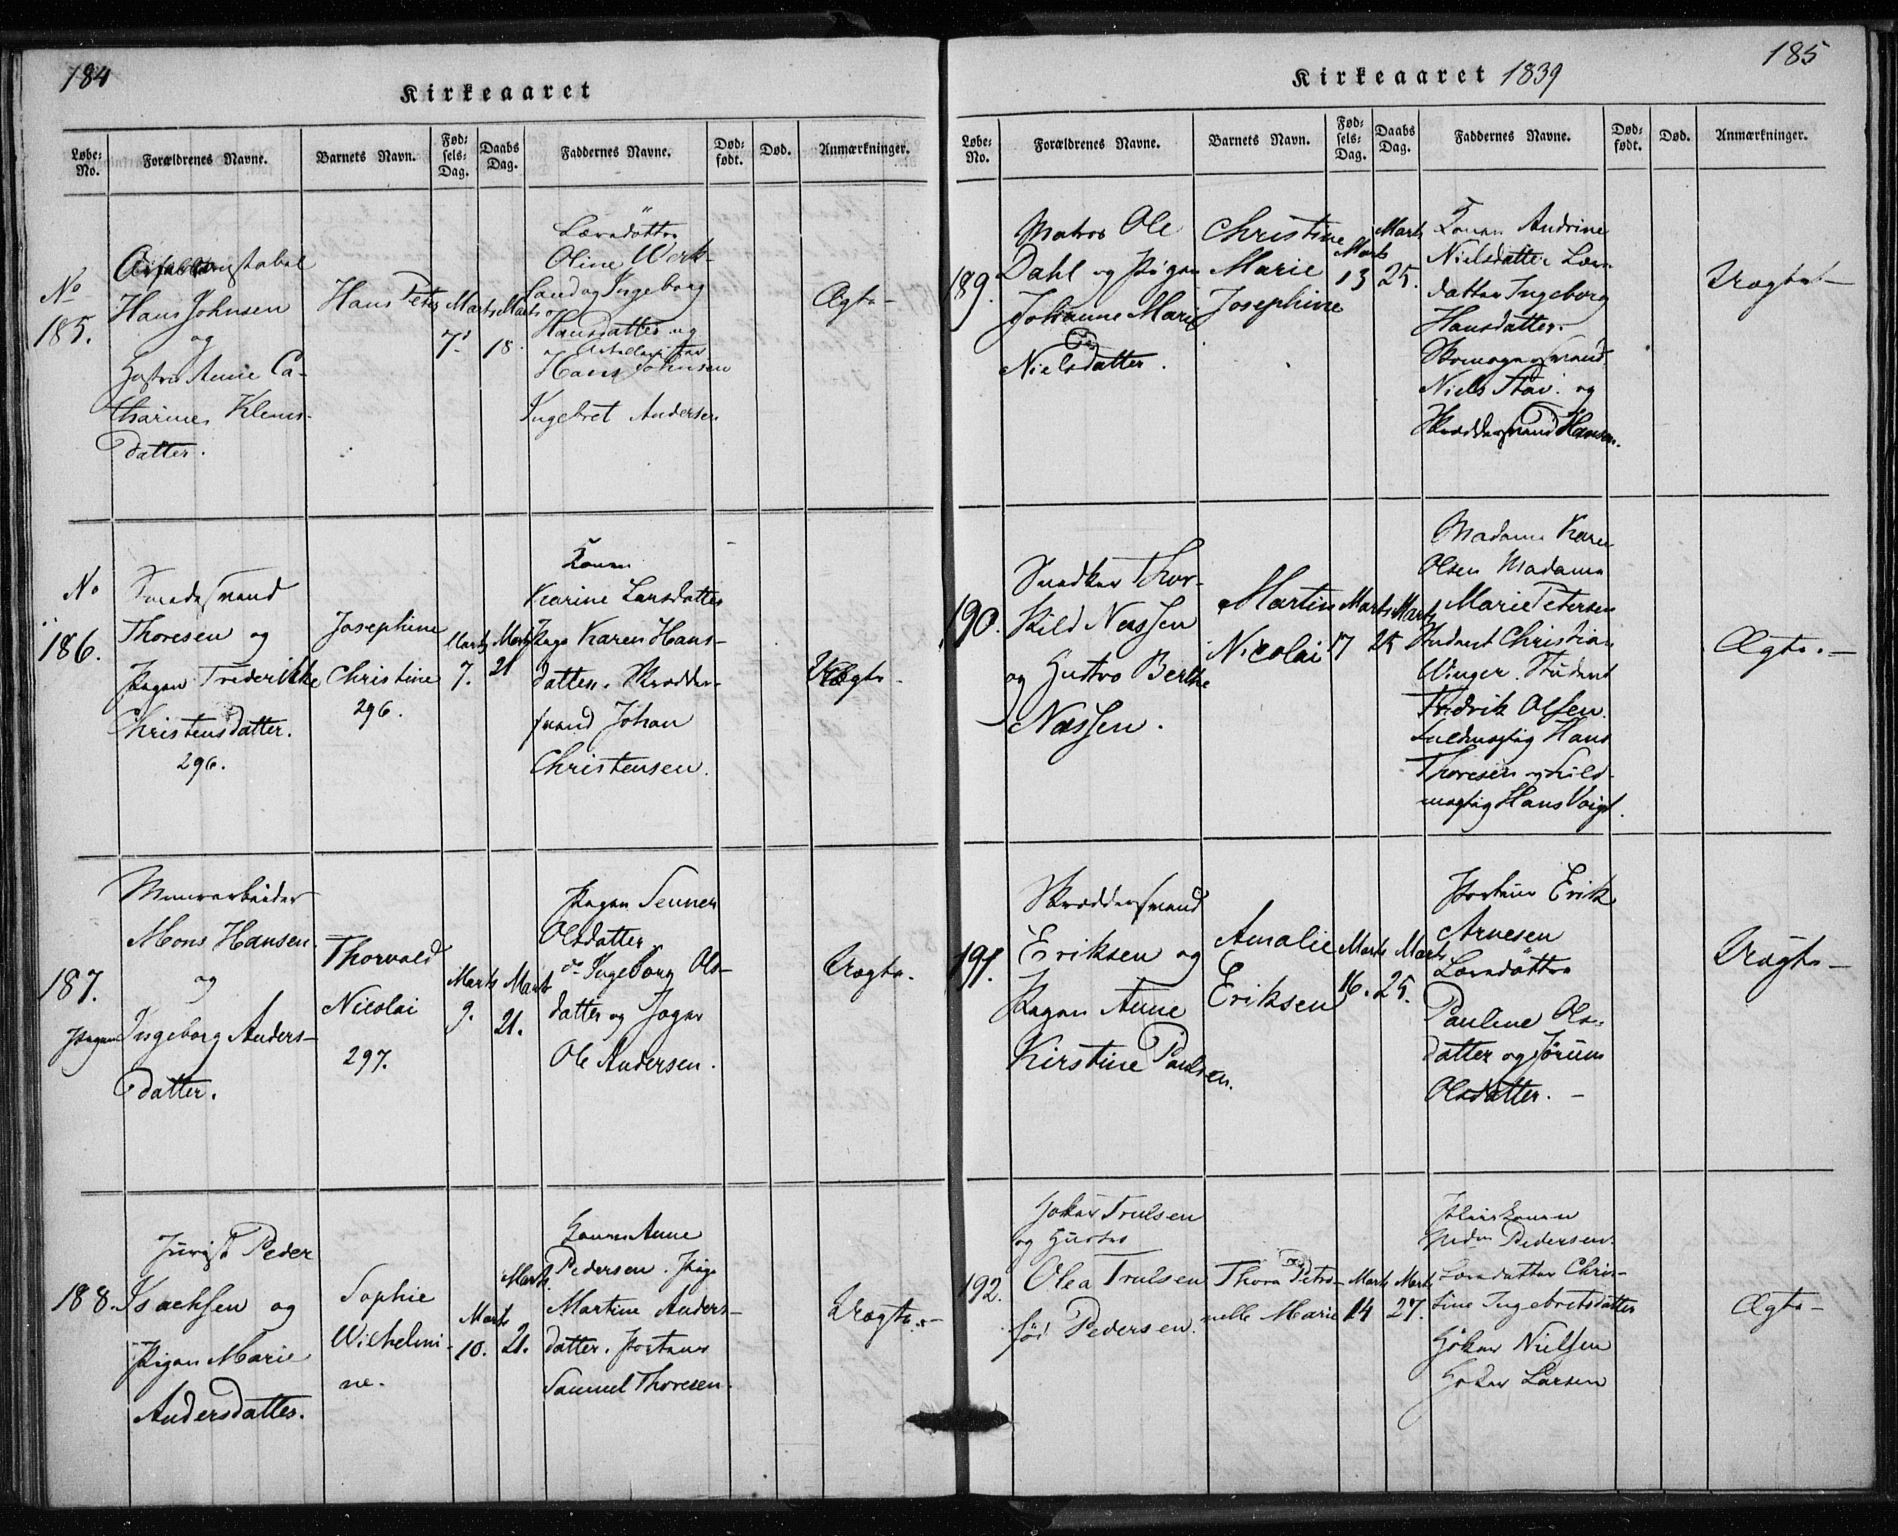 184
Kirkeaaret
Løbe-No.
Forældrenes Navne.
Barnets Navn.
Fød-sels-Dag.
Daabs Dag.
Faddernes Navne.
Død-født.
Død.
Anmærkninger.
No
185.
Hans Johnsen
og
Hustro Anne Ca-
tharine Klems-
datter.
Hans Peter
Marts
7.
Marts
18.
Oline Werk-
land og Ingeborg
Hansdatter og
Hans Johnsen
Ingebret Andersen
Ægte-
No
186.
Smedesvend
Thoresen og
Pigen Frederikke
Christensdatter.
296.
Josephine
Christine
296.
Marts
7.
Marts
21
Konen
Karine Larsdatter
Pige Karen Hans-
datter. Skrædder-
svend Johan
Christensen.
Uægte-
187.
Muurarbeider
Mons Hansen
og
Pigen Ingeborg Anders-
datter.
Thorvald
Nicolai
297.
Marts
9.
Marts
21.
Pigen
Olsdatter
do Ingeborg Ols-
datter og
Ole Andersen.
Uægte-
188.
Peder
Isachsen og
Pigen Marie
Andersdatter.
Sophie
Wilhelmi-
ne.
Marts
10.
Marts
21.
Konen Anne
Pedersen. Pige
Martine Anders-
datter.
Samuel Thoresen.
Uægte.-
185
Kirkeaaret 1839
Løbe-No.
Forældrenes Navne.
Barnets Navn.
Fød-sels-Dag.
Daabs Dag.
Faddernes Navne.
Død-født.
Død.
Anmærkninger.
189.
Matros Ole
Dahl og Pigen
Johanne Marie
Nielsdatter.
Christine
Marie
Josephine
Marts
13
Marts
25.
Konen Andrine
Nielsdatter
datter Ingeborg
Hansdatter.
Skomagersvend
Niels og
Skræddersvend Hansen.
Uægte-
190.
Snedker Thor-
kild Nassen
og Hustro Berthe
Nassen.
Martin
Nicolai
Marts
17
Marts
25
Madame Karen
Olsen Madame
Marie Petersen
Student Christian
Winger. Student
Fredrik Olsen.
Fuldmægtig Hans
Thoresen og Fuld-
mægtig Hans Voigt.
Ægte.-
191.
Skræddersvend
Eriksen og
Pigen Anne
Kirstine Paulsen.
Amalie
Eriksen
Marts
16.
Marts
25.
Erik
Arnesen
Pauline Ols-
datter og Jörun
Olsdatter.-
Uægte-
192.
Høker Trulsen
og Hustro
Olea Trulsen
fød Pedersen.
Thora Petro-
nelle Marie
Marts
14
Marts
27.
Pedersen.
Chris-
tine Ingebretsdatter
Høker Nielsen
Høker Larsen
Ægte-